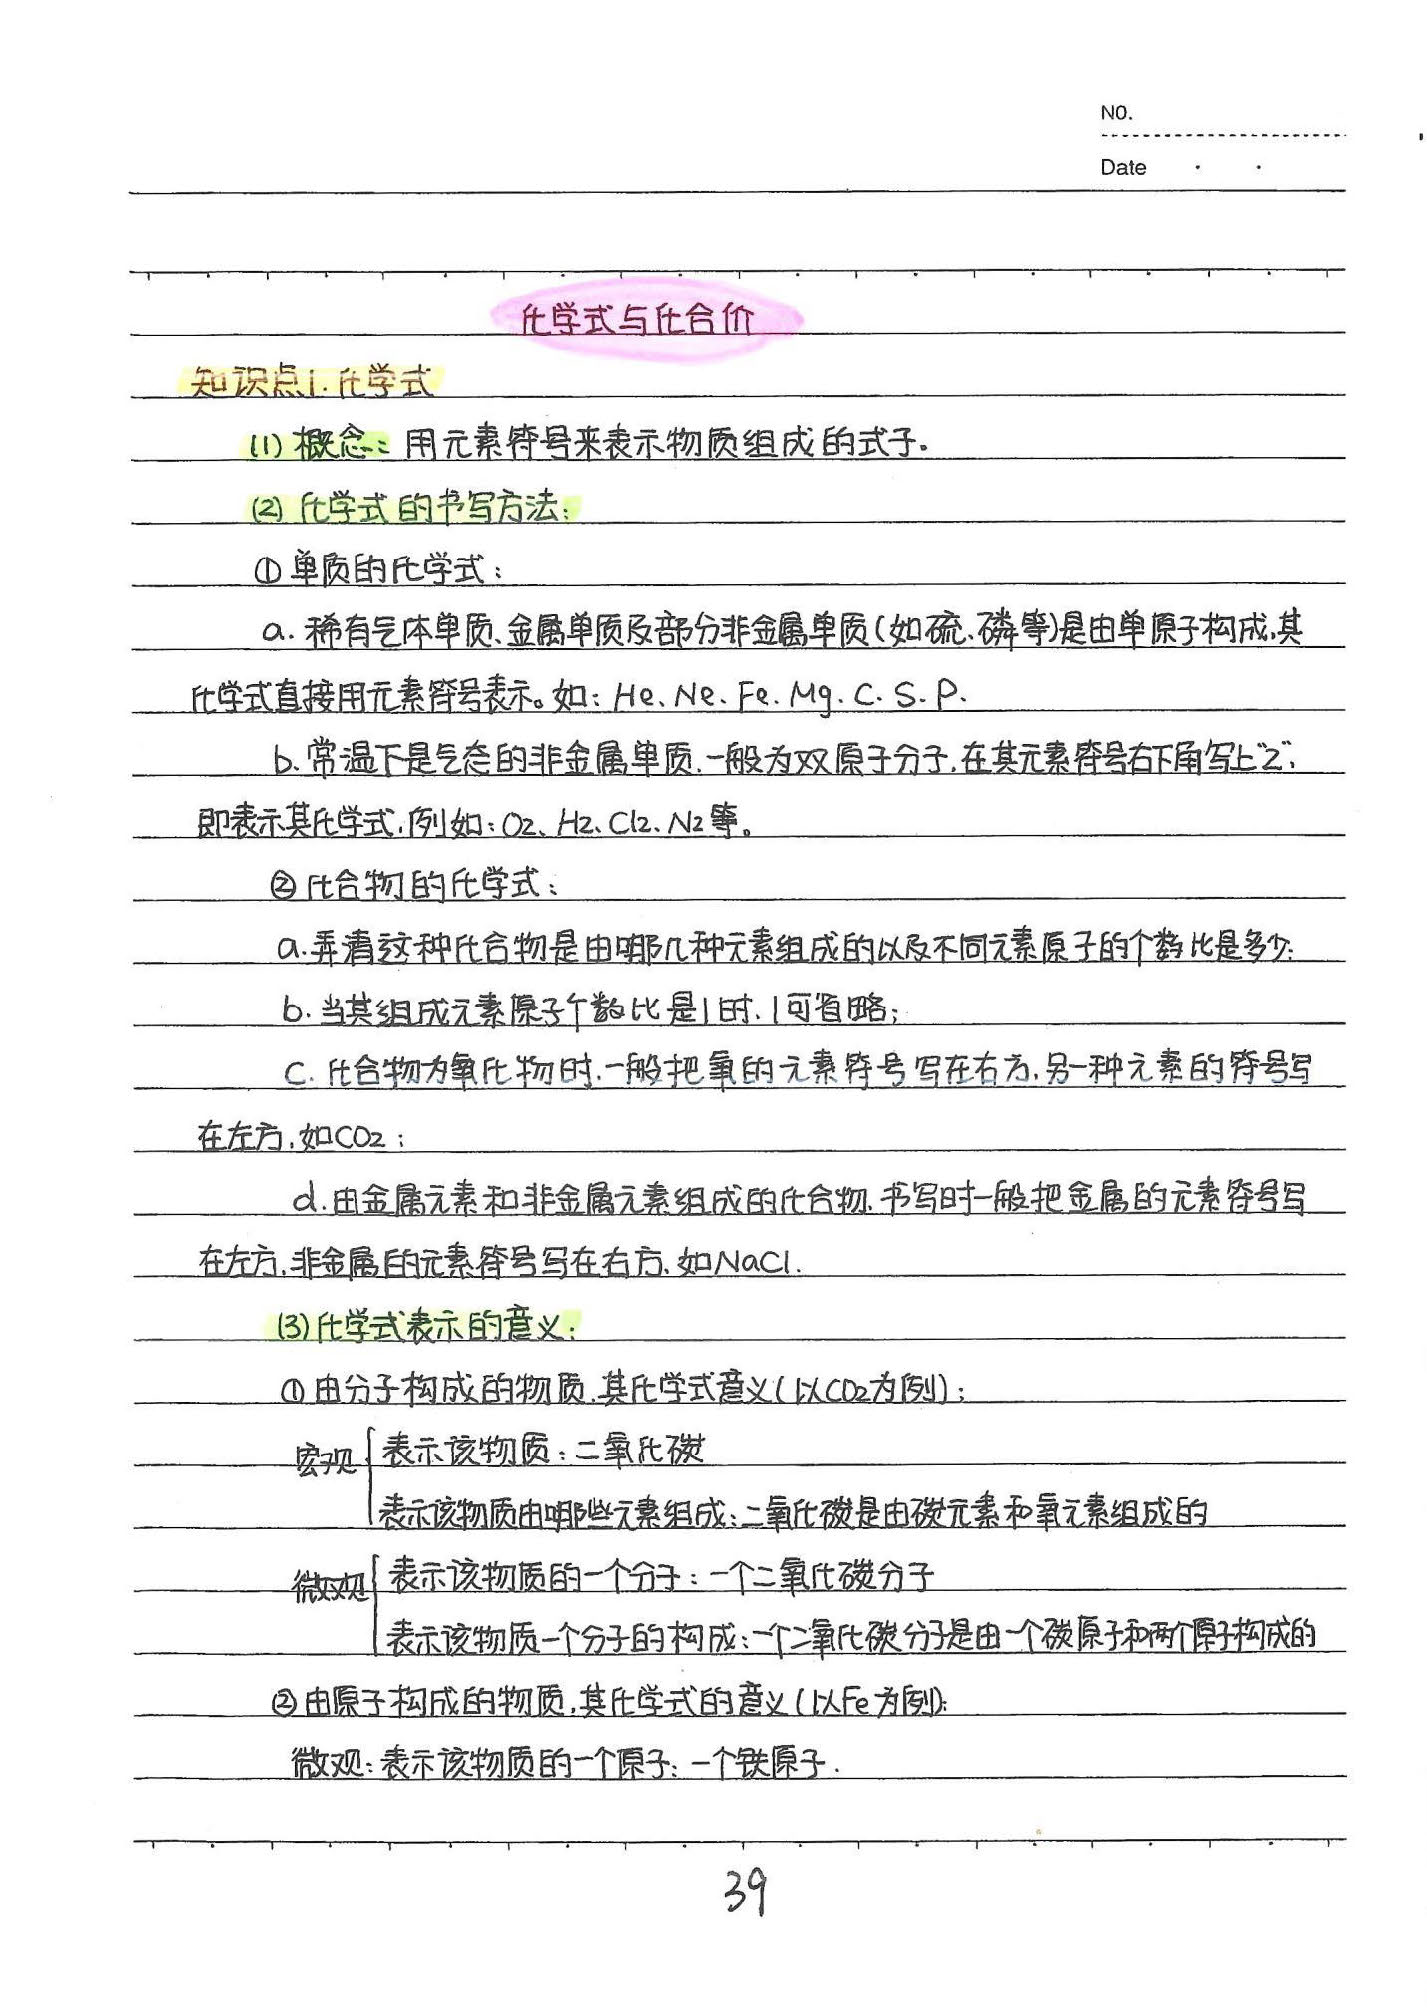 NO.
Date
化学式与化合价
知识点1.化学式
(1)概念:用元素符号来表示物质组成的式子。
(2)化学式的书写方法:
①单质的化学式:
a.稀有气体单质、金属单质及部分非金属单质(如硫、磷等)是由单原子构成,其
化学式直接用元素符号表示。如:He、Ne、Fe、Mg、C、S、P.
b.常温下是气态的非金属单质,一般为双原子分子,在其元素符号右下角写上"2",
即表示其化学式,例如:O2、H2、Cl2、N2等。
②化合物的化学式:
a.弄清这种化合物是由哪几种元素组成的以及不同元素原子的个数比是多少;
b.当其组成元素原子个数比是1时,1可省略;
c.化合物为氧化物时,一般把氧的元素符号写在右方,另一种元素的符号写
在左方,如CO2;
d.由金属元素和非金属元素组成的化合物,书写时一般把金属的元素符号写
在左方,非金属的元素符号写在右方,如NaCl.
(3)化学式表示的意义:
①由分子构成的物质,其化学式意义(以CO2为例):
宏观 表示该物质:二氧化碳
表示该物质由哪些元素组成:二氧化碳是由碳元素和氧元素组成的
微观 表示该物质的一个分子:一个二氧化碳分子
表示该物质一个分子的构成:一个二氧化碳分子是由一个碳原子和两个原子构成的
②由原子构成的物质,其化学式的意义(以Fe为例):
微观:表示该物质的一个原子:一个铁原子.
39